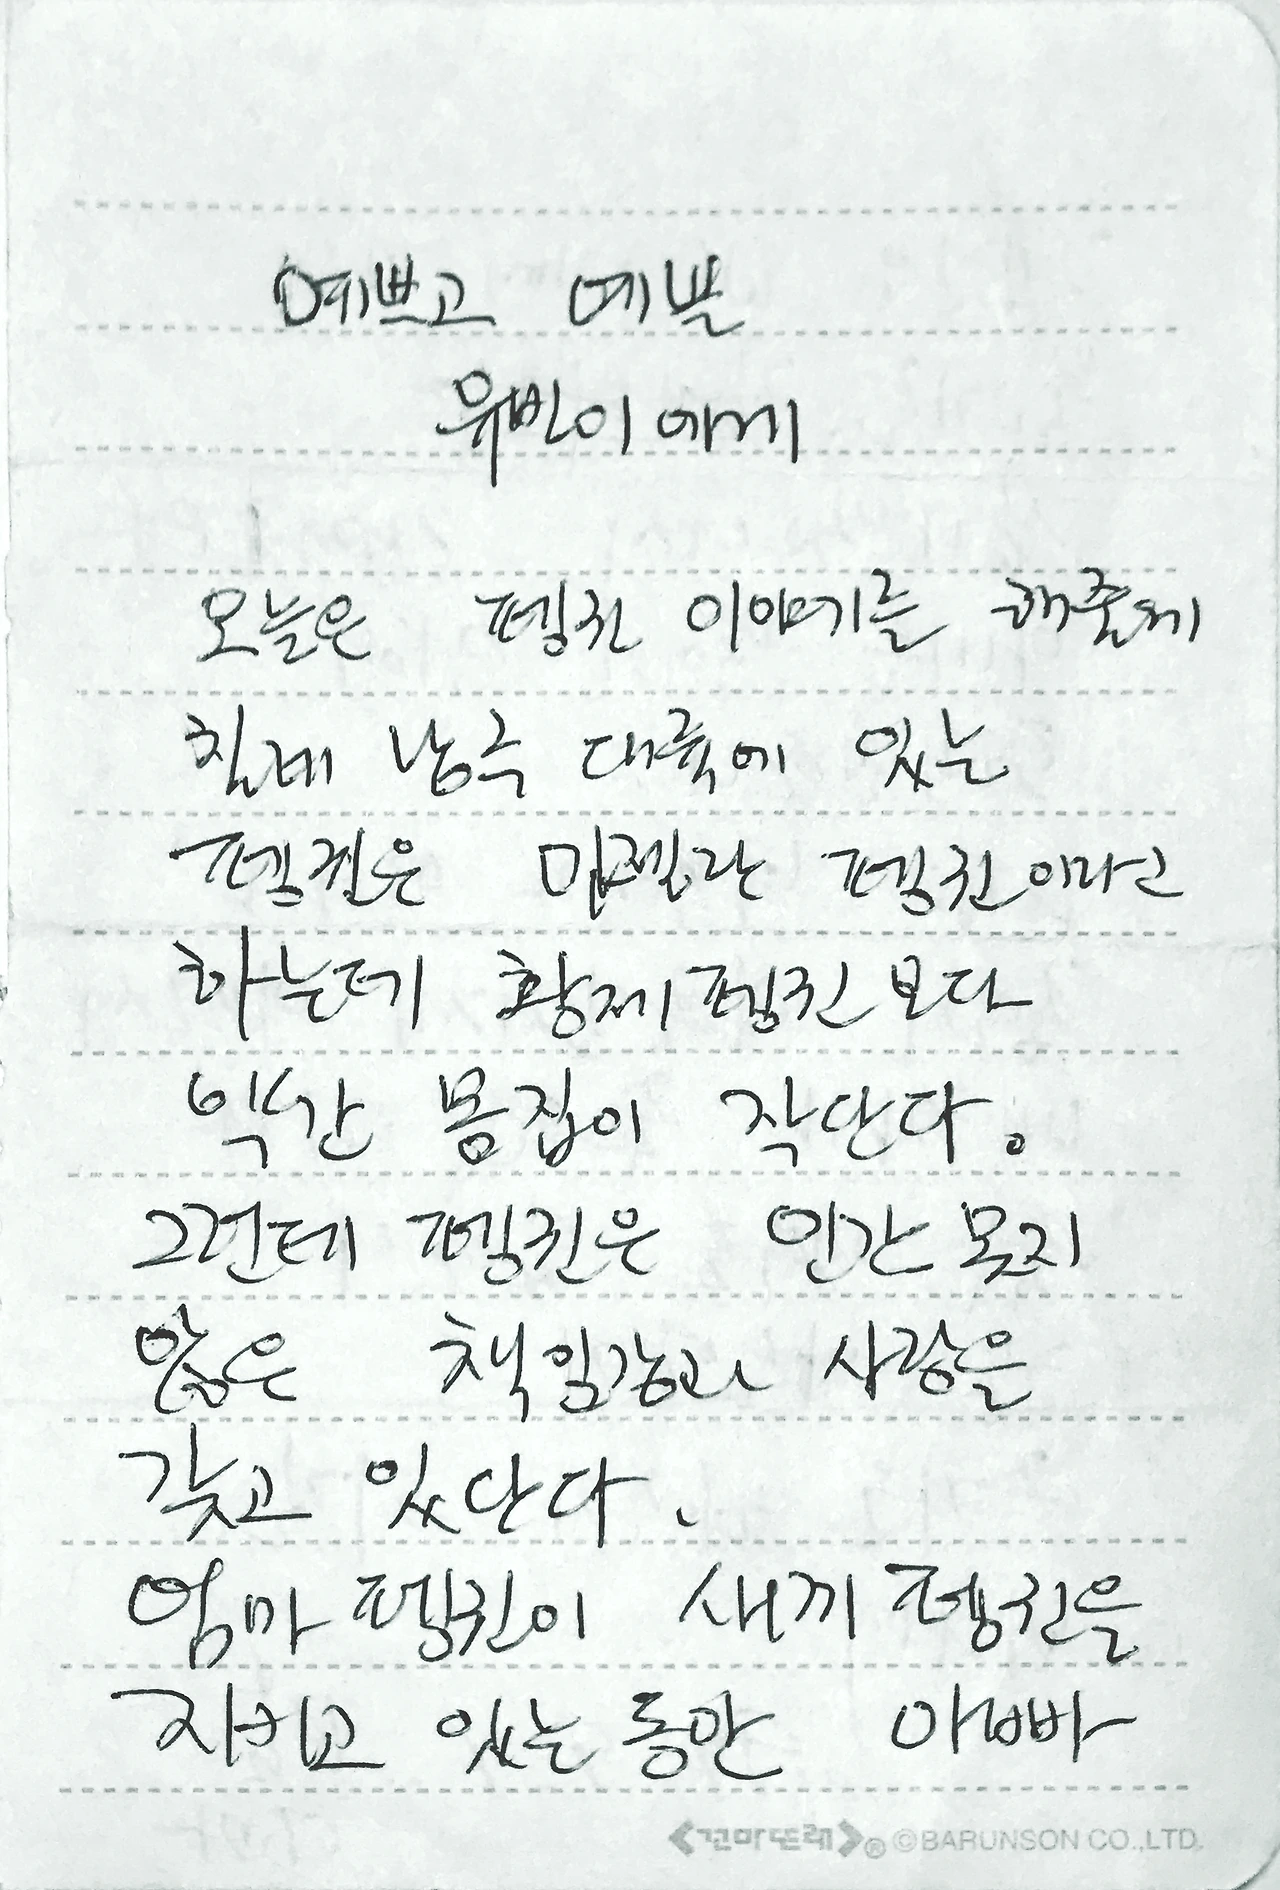 예쁘고 예쁜
유빈이에게
오늘은 펭귄 이야기를 해줄게
칠레 남극 대륙에 있는
펭귄은 마젤란 펭귄이라고
하는데 황제펭귄보다
약간 몸집이 작단다.
그런데 펭귄은 인간 못지
않은 책임감과 사랑을
갖고 있단다.
엄마 펭귄이 새끼 펭귄을
지키고 있는 동안 아빠
<꼬마또래>® ©BARUNSON CO.,LTD.